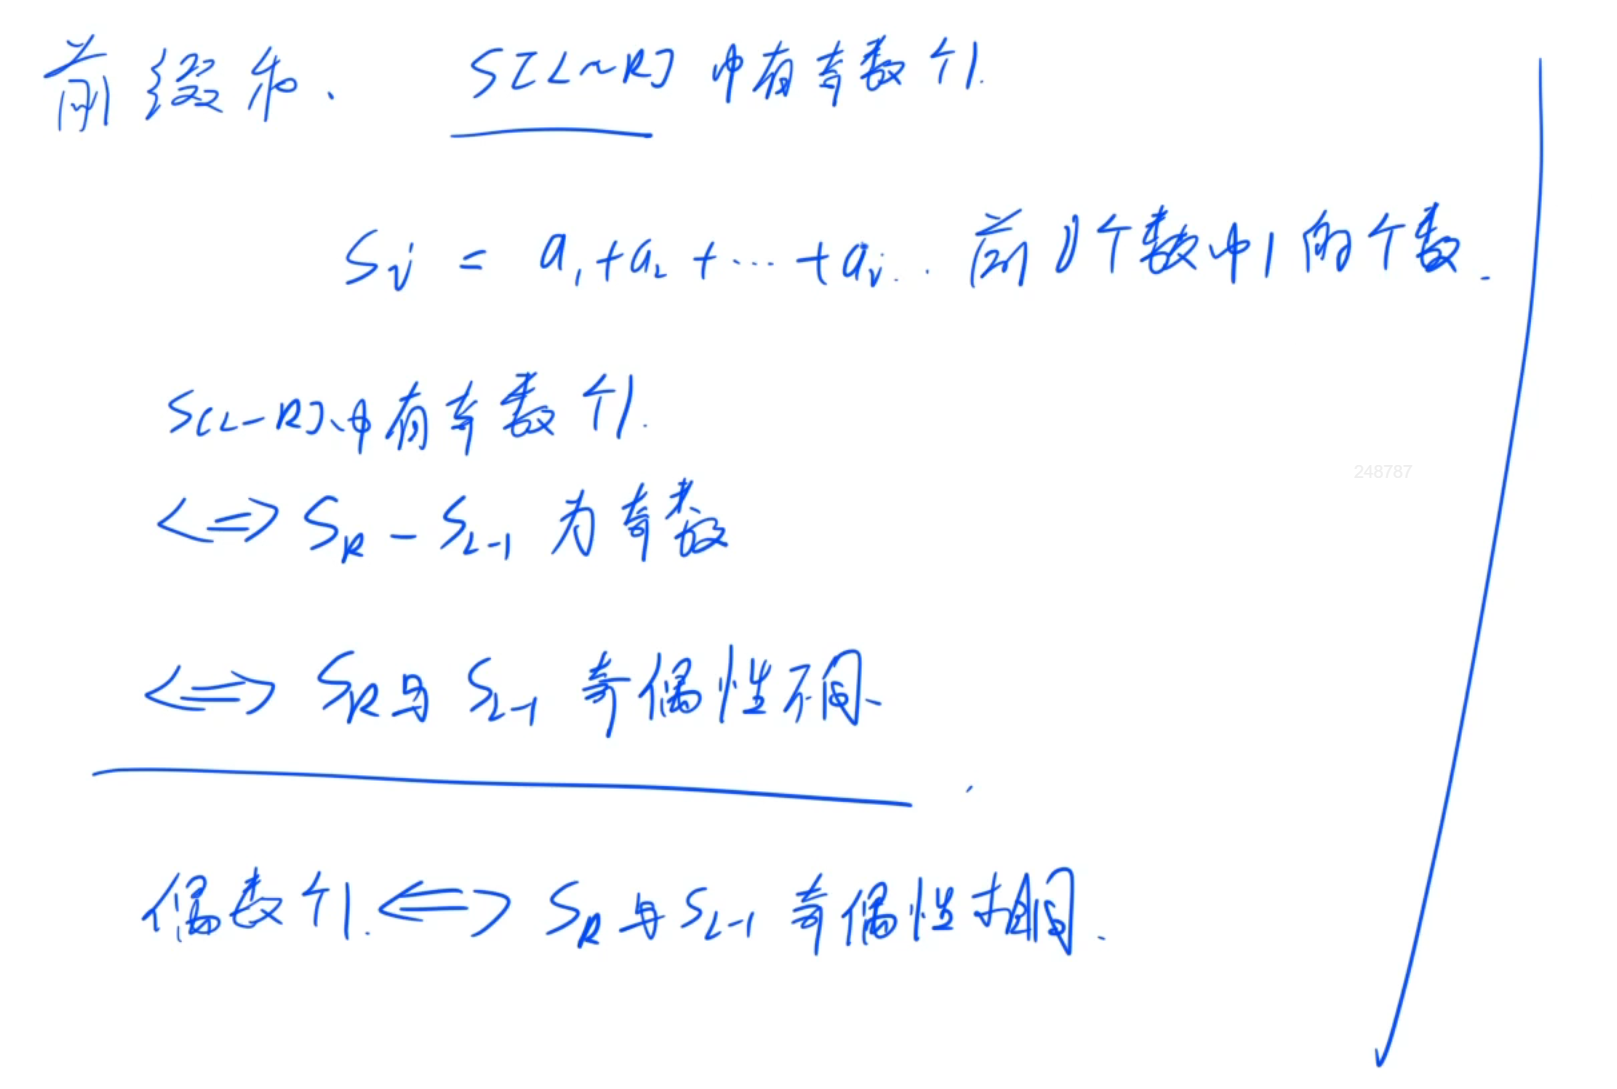 前缀和、 S[L~R]中有奇数个1.
Si = a1+a2+…+ai. 前i个数中1的个数.
S[L-R]中有奇数个1.
<=> SR - SL-1 为奇数
<=> SR与SL-1奇偶性不同、
偶数个1. <=> SR与SL-1奇偶性相同.
248787